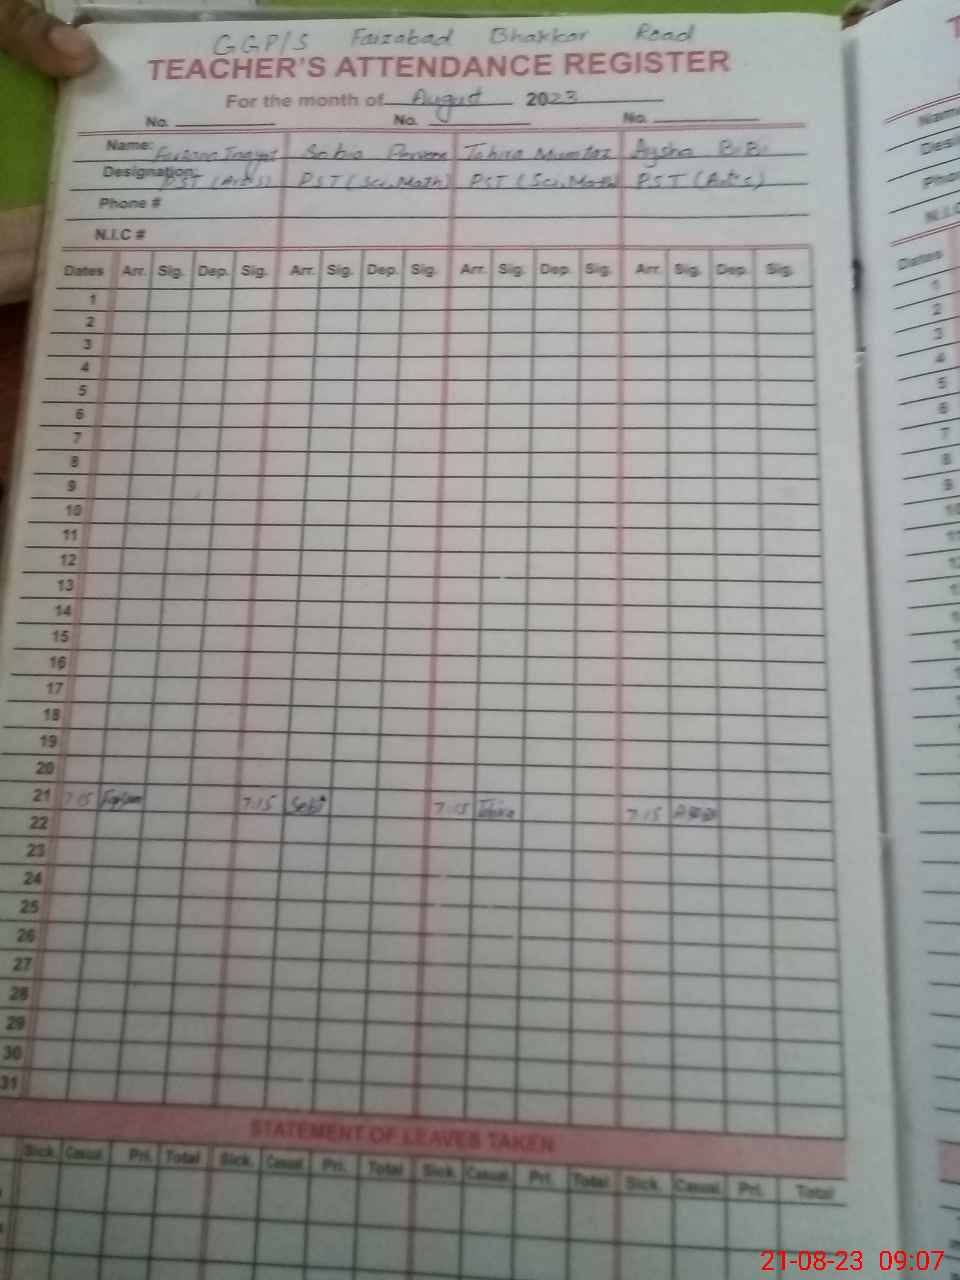 GGP/S Faizabad Bhakkar Road
TEACHER'S ATTENDANCE REGISTER
For the month of August 2023
No. No. No.
Name: Farzana Inayat Sobia Parveen Tahira Mumtaz Aysha BiBi
Designation: PST (Arts) PST (Sci, Math) PST (Sci, Math) PST (Arts)
Phone #
N.I.C #
Dates Arr. Sig. Dep. Sig. Arr. Sig. Dep. Sig. Arr. Sig. Dep. Sig. Arr. Sig. Dep. Sig.
1
2
3
4
5
6
7
8
9
10
11
12
13
14
15
16
17
18
19
20
21 7:15 7:15 7:15 Tahira 7:15
22
23
24
25
26
27
28
29
30
31
STATEMENT OF LEAVES TAKEN
Sick. Casual. Pri. Total Sick. Casual. Pri. Total Sick. Casual. Pri. Total Sick. Casual. Pri. Total
Name
Desi
Phon
N.I.C
Dates
1
2
3
4
5
6
7
8
9
10
11
21-08-23 09:07